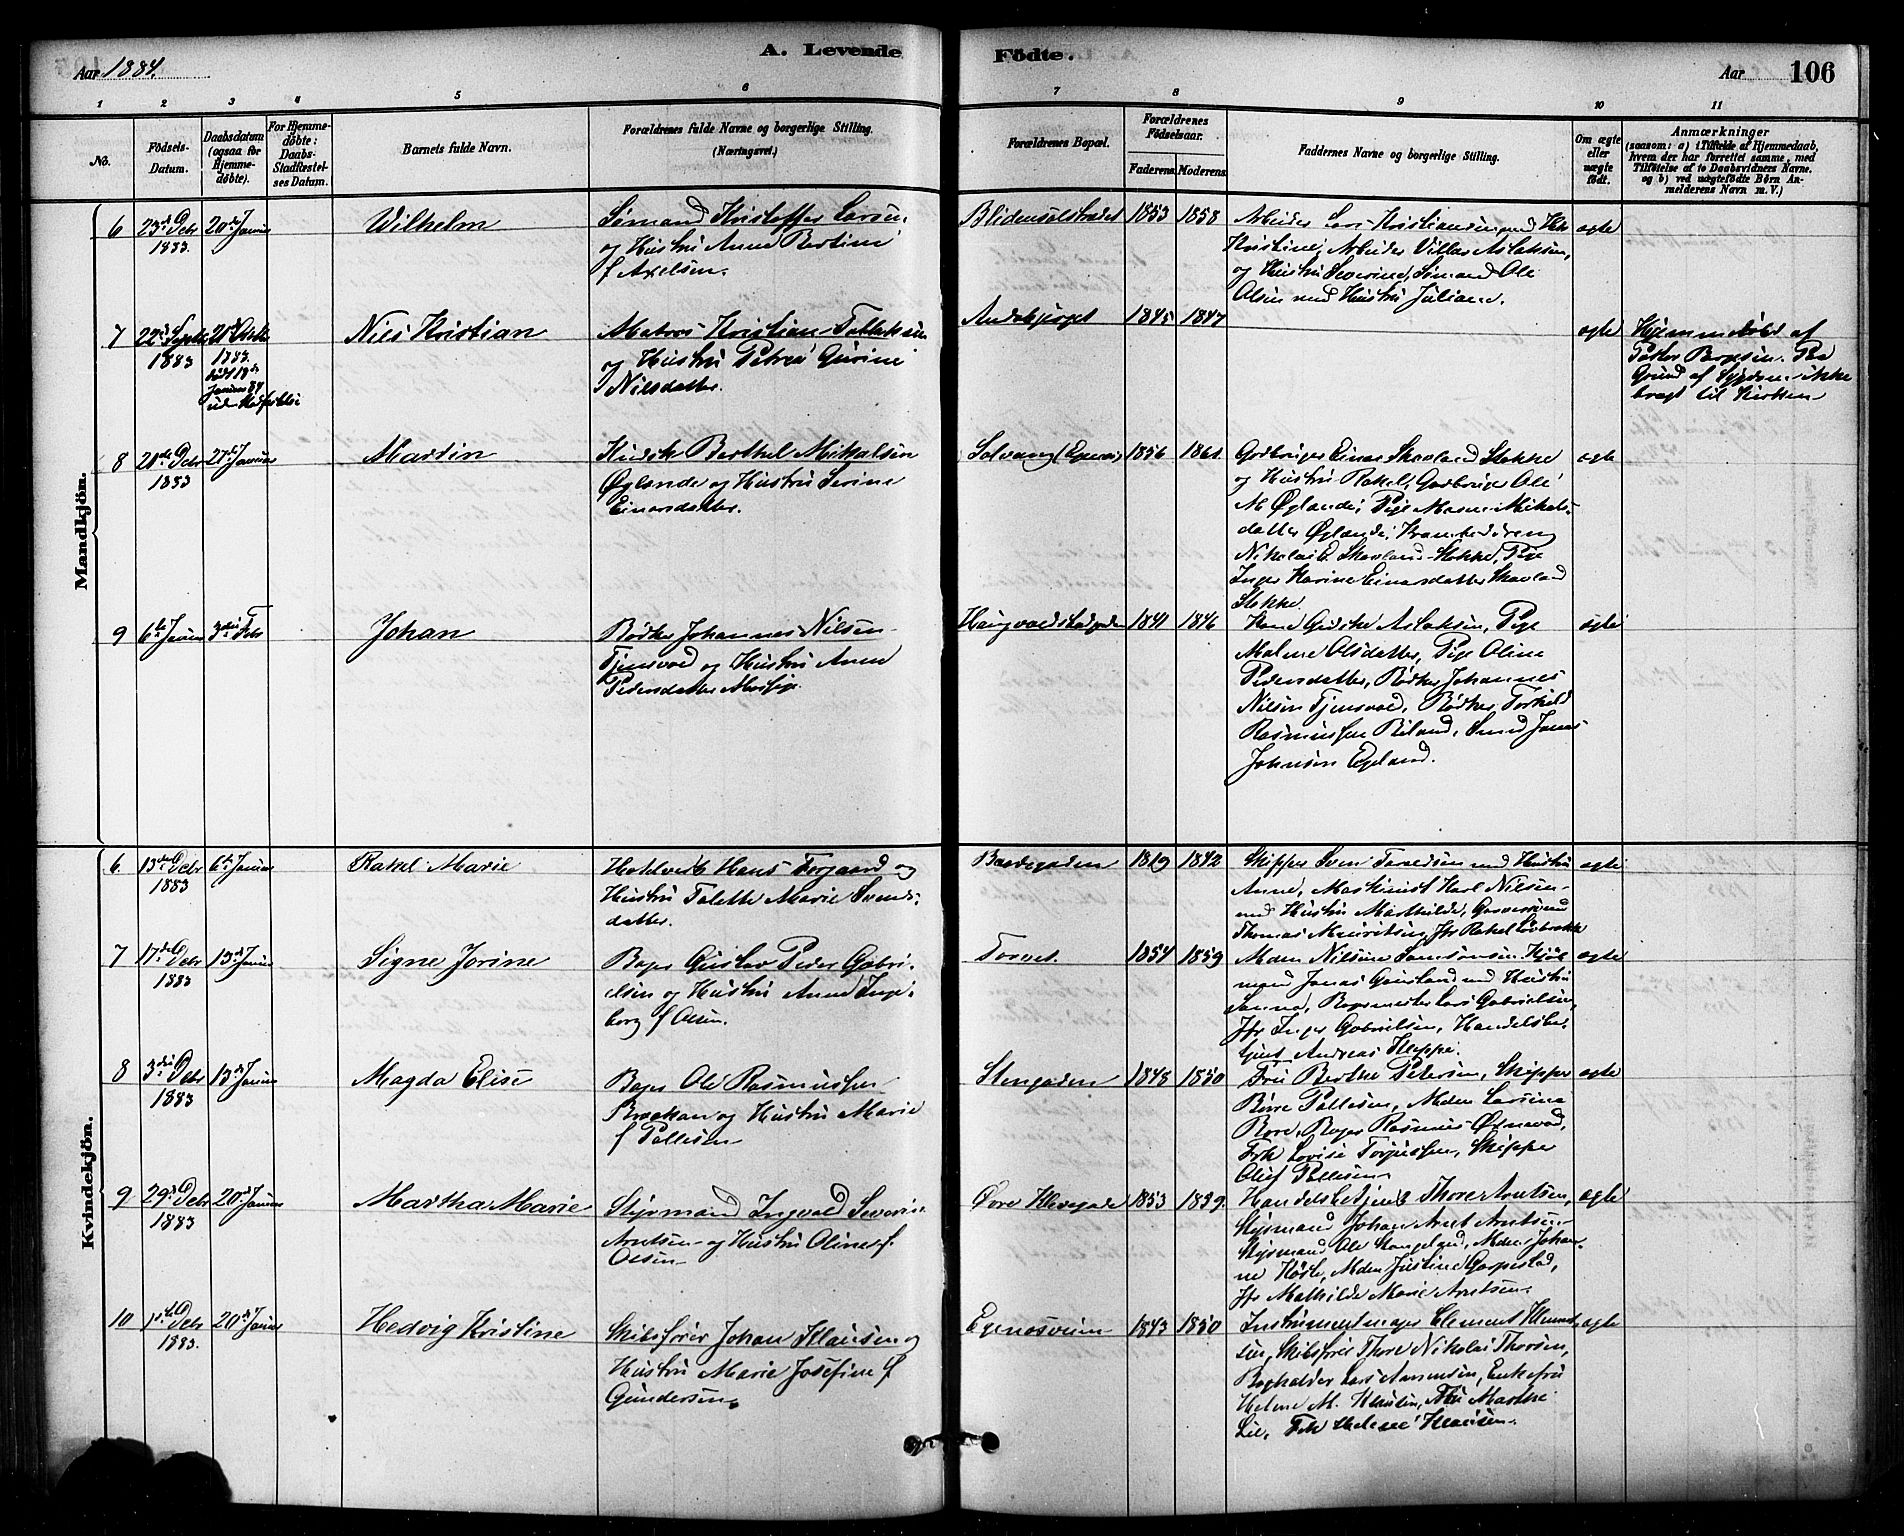 A. Levende Födte.
Aar 1884.
Aar 106
1 2 3 4 5 6 7 8 9 10 11
No.
Födsels-Datum.
Daabsdatum (ogsaa for Hjemmedøbte).
For Hjemmedøbte: Daabs-Stadfæstelses Datum.
Barnets fulde Navn.
Forældrenes fulde Navne og borgerlige Stilling. (Næringsvei.)
Forældrenes Bopæl.
Forældrenes Fødselsaar.
Faderens. Moderens.
Faddernes Navne og borgerlige Stilling.
Om ægte eller uægte født.
Anmærkninger
(saasom: a) i Tilfælde af Hjemmedaab, hvem der har forrettet samme, med Tilføielse af to Daabsvidners Navne. og b) ved uægtefødte Børn Anmelderens Navn m. V.)
Mandkjön.
6 23de Debr 1883. 20de Januar Wilhelm
Sømand Kristoffer Larsen
og Hustru Anne Bertine
f. Axelsen.
Blidensolstrædet 1853 1858
Arbeider Lars Kristiansen med
Kristine, Arbeider Villas Aslaksen,
og Hustru Severine, Sømand Ole
Olsen med Hustru Juliane.
ægte
7 22de Septbr 1883
Nils Kristian
Matros Kristian
og Hustru Petrea Gurine
Nilsdatter.
1845 1847
ægte
Hjemmedøbt af
Pastor Børresen. Paa
Grund af Sygdom ikke
bragt til Kirken
8 20de Debr 1883 27de Januar Martin
Kusk Berthel Mikalsen
Øglænde og Hustru Serine
Einarsdatter.
Solvang (Egenæs) 1856 1861
Gadbruger Einar Skavland Stokke
og Hustru Rakel, Gadbruger Ole
M Øglænde, Pige Maren Mikals-
datter Øglænde,
Nikolai E Skavland Stokke, Pige
Inger Karine Einarsdatter Skavland
Stokke.
ægte
9 6te Januar 3die Febr Johan
Bødker Johannes Nilsen
Tjensvold og Hustru Anne
Pedersdatter
Haugvaldstadgaden 1841 1846
Kone Aslaksen, Pige
Malene Olsdatter, Pige Oline
Pedersdatter, Bødker Johannes
Nilsen Tjensvold, Bødker Torkild
Rasmussen Biland, Smed Jonas
Johnsen Egeland.
ægte
Kvindekjön.
6. 13de Debr 1883 6te Januar Rakel Marie
Hans Torgaard og
Hustru Talette Marie Svends-
datter.
1842
Skipper Sven med Hustru
Anne, Maskinist Karl Nilsen
med Hustru Marthilde,
Thomas Mauritsen, Jfr Rakel
ægte
7 17de Debr 1883 13de Januar Signe Jorine
Bager Gustav Peder Gabri-
elsen og Hustru Anne Inge-
borg f. Olsen.
Torvet. 1854 1859
Mdm Nilsine Samsonsen, Kjøb-
mand Jonas Gausland med Hustru
Sanne, Bagermester Lars Gabrielsen,
Jfr Inger Gabrielsen, Handelsbe-
tjent Andreas Kleppe.
ægte
8 3die Debr 1883 13de Januar Magda Elise
Bager Ole Rasmussen
og Hustru Marie
f. Pallesen
Stengaden 1848 1850
Fru Berthe Petersen, Skipper
Børre Pallesen, Mdm Lassine
Bore, Bager Rasmus Øgnevad,
Frk Lovise Torjussen, Skipper
Oluf Pallesen
ægte
9 29de Debr 1883 20de Januar Martha Marie
Styrmand Ingvald Severin
Arntsen og Hustru Oline f.
Olsen
Øvre Klevegade 1853 1859.
Handelsbetjent Thore Arntsen,
Styrmand Johan Arnt Arntsen
Styrmand Ole Stangeland, Mdm Johan-
ne, Mdm Justine Garpestad,
Jfr Mathilde Marie Arntsen.
ægte
10 1ste Debr 1883. 20de Januar Hedvig Kristine
Skibsfører Johan Klausen og
Hustru Marie Josefine f.
Gundersen
Egenæsveien 1843 1850
Instrumentmager Clement
sen, Skibsfører Thore Nikolai Thorsen,
Bogholder Lars Amundsen, Enkefru
Helene M. Klausen, Fru Marthe
Lie, Frk Helene Klausen.
ægte